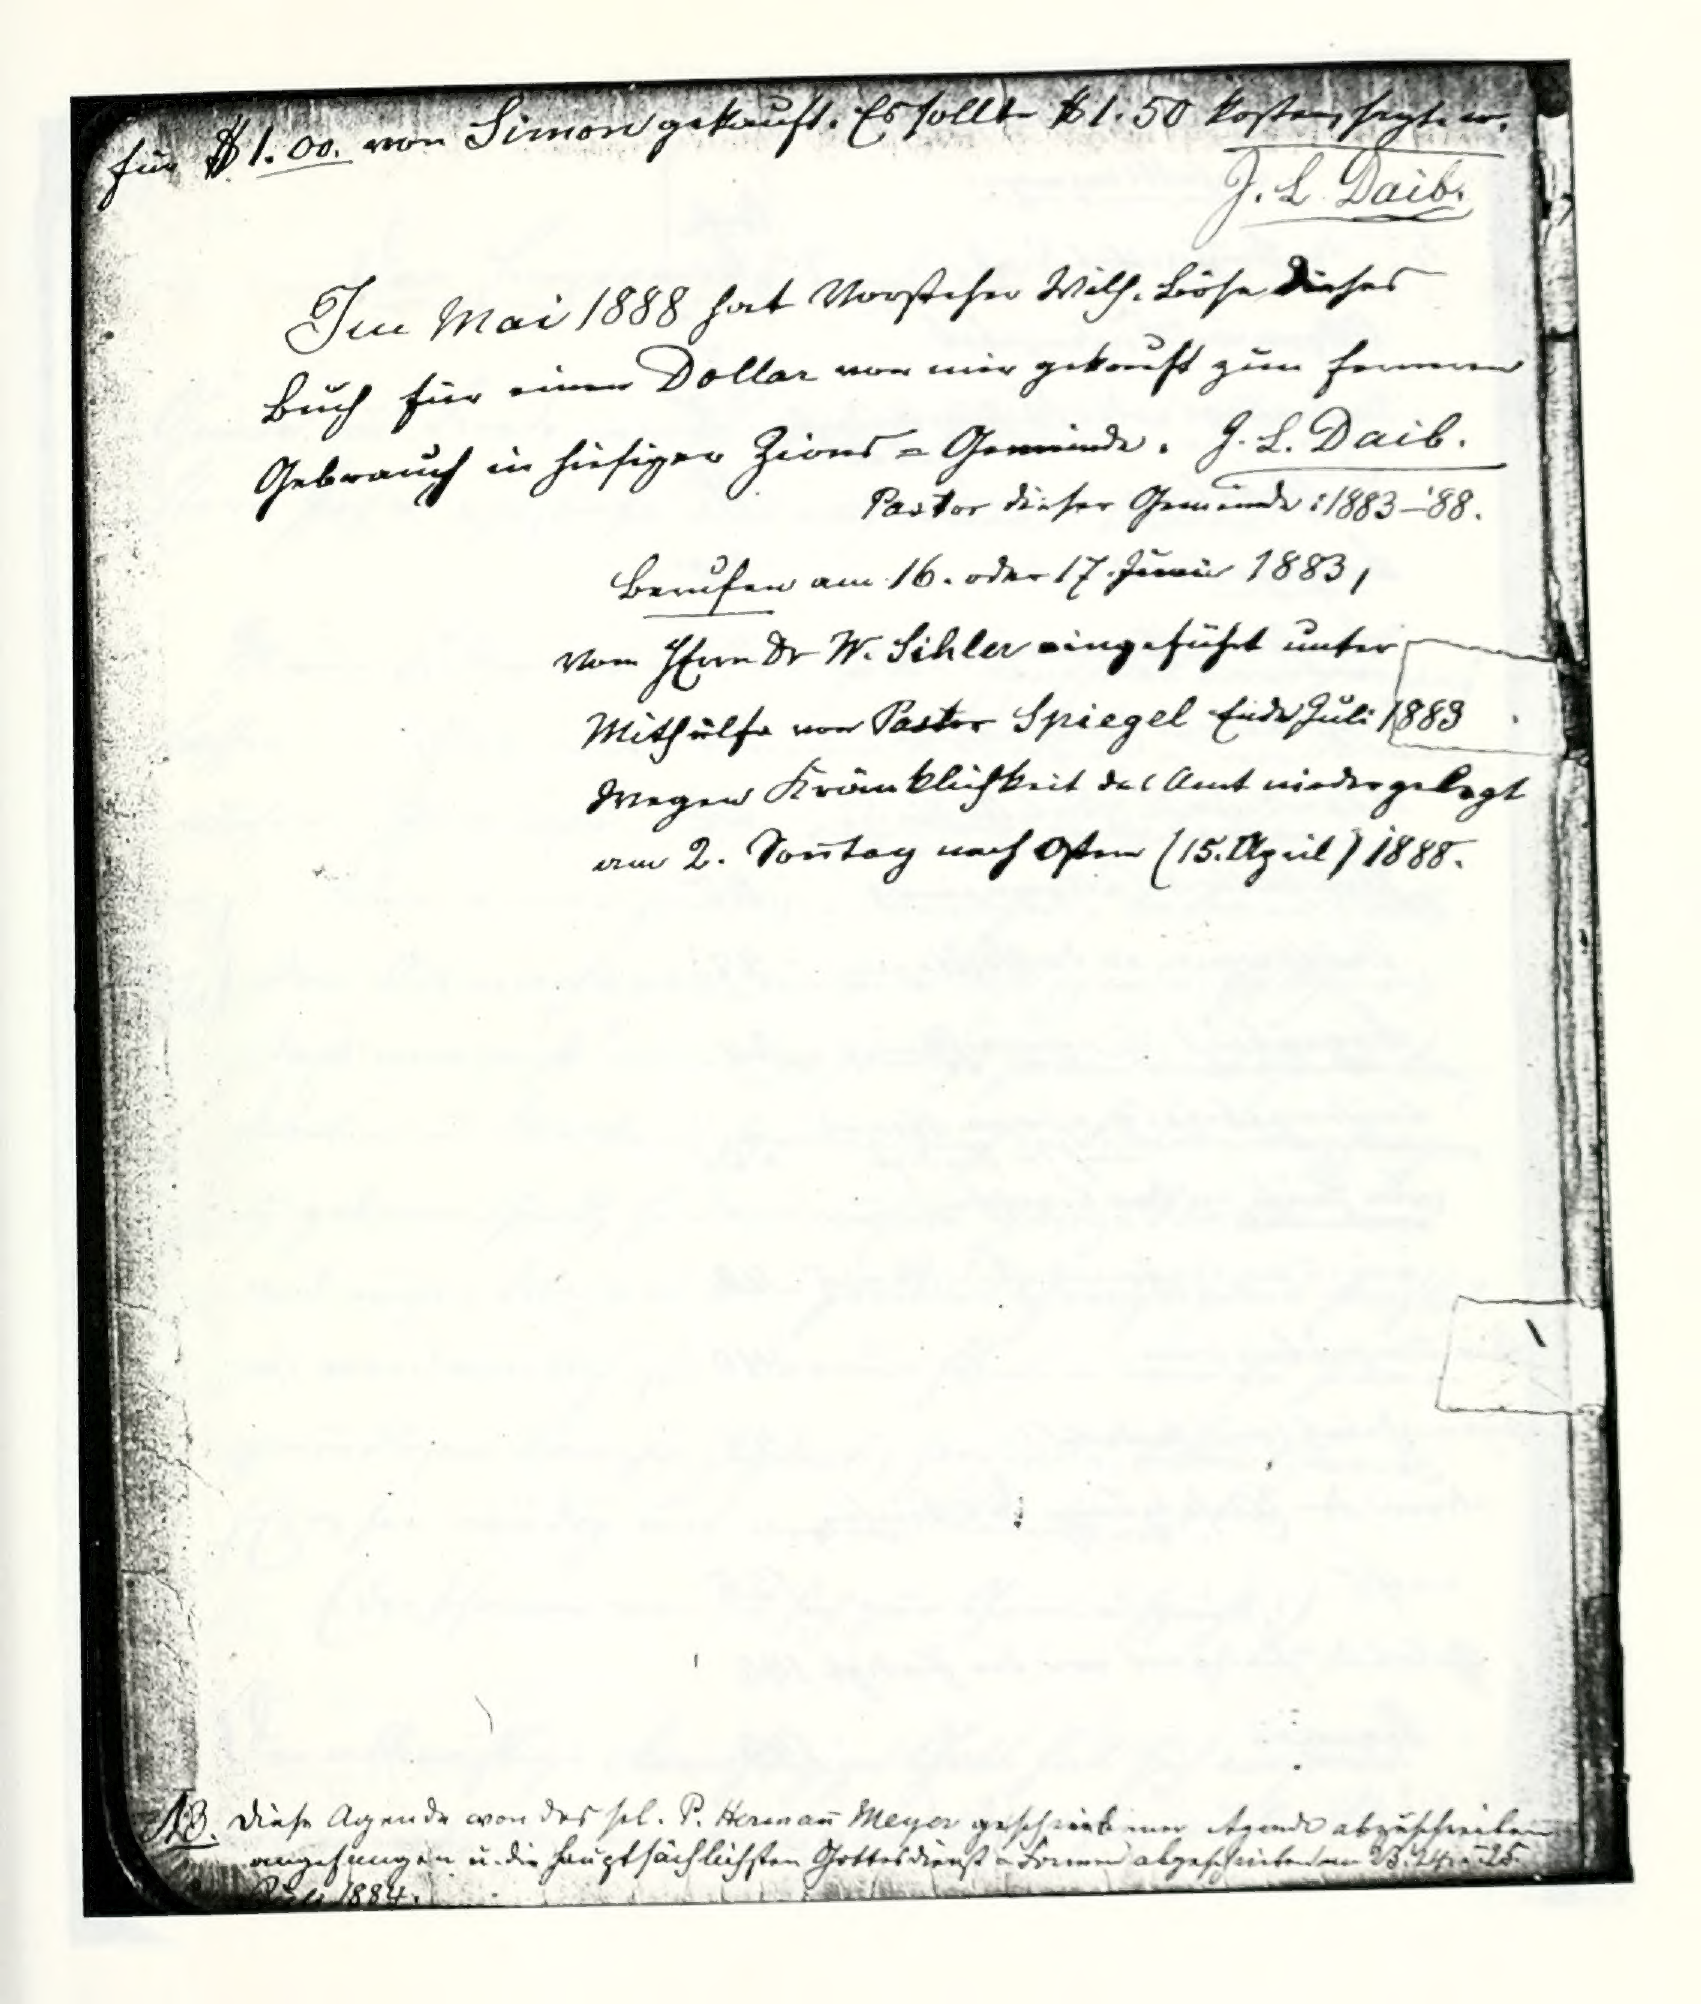 für $1.00. von Simon gekauft. Es sollte $1.50 kosten, sagte er.
J. L. Daib.
Im Mai 1888 hat Vorsteher Wilh. Böse dieses
Buch für einen Dollar von mir gekauft zum ferneren
Gebrauch in hiesiger Zions=Gemeinde. J. L. Daib.
Pastor dieser Gemeinde: 1883–'88.
Berufen am 16. oder 17. 1883,
vom Herrn Dr W. Sihler eingeführt unter
Mithülfe von Pastor Spiegel Ende Juli 1883
Wegen Kränklichkeit das Amt niedergelegt
am 2. Sontag nach Ostern (15. April) 1888.
NB. Diese Agende von des sel. P. Herman Meyer geschriebener Agende abzuschreiben
angefangen u. die hauptsächlichsten Gottesdienst-Formen abgeschrieben am 23. 24. u. 25.
1884.